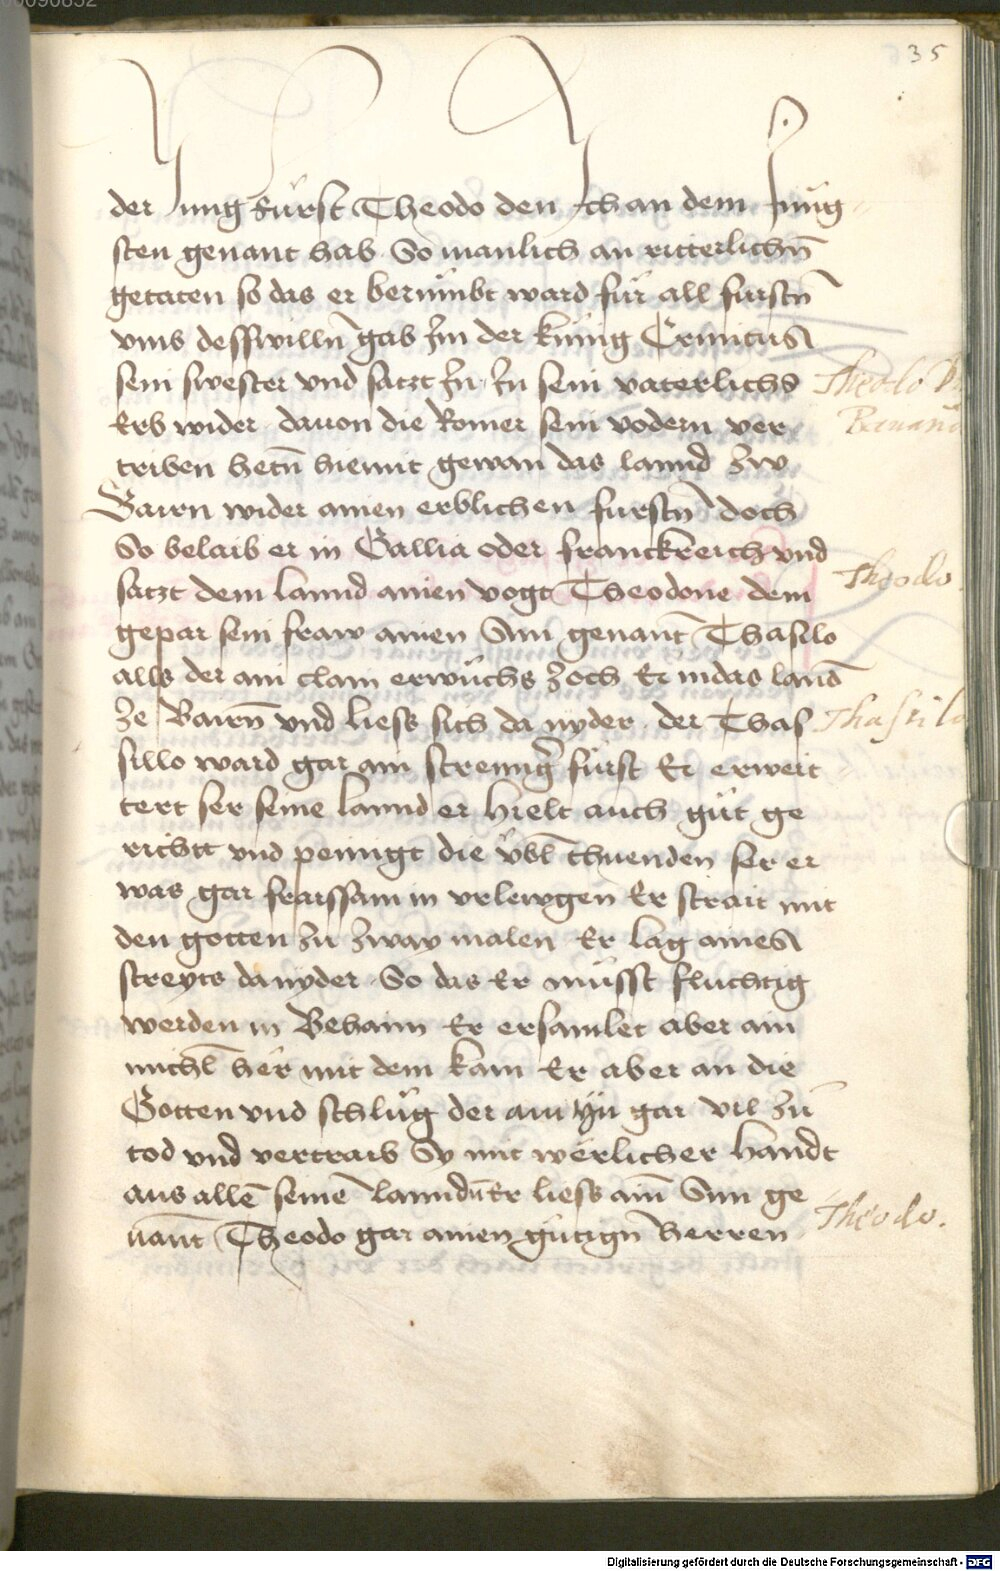 35
der Jung fürst Theodo den ich an dem Jüng
sten genant hab So manlich an ritterlichn̄
getaten so das er berümbt ward für all furstn̄
vmb desswilln̄ gab Jm der künig
sein swester vnd satzt Jn Jn sein vaterlichs
Erb wider dauon die Romer sein vodern ver
triben hetn̄ hiemit gewan das lannd zw
Bairn wider ainen erblichen furstn̄ doch
So belaib er in Gallia oder franckreich vnd
satzt dem lannd ainen vogt Theodone dem
gepar sein fraw ainen Sun genant Thasilo
alls der ain clain erwüchs zoch Er in das lannd
ze Bairn̄ vnd liess sich da nyder der Thas
sillo ward gar ain strenngˀ fürst Er erweit
tert ser seine lannd er hielt auch güt ge
richtt vnd peinigt die übl thuenden ser er
was gar fraissam in vrlewgen Er strait mit
den gotten zu zway malen Er lag aines
streyts da nyder So das Er müsst fluchtig
werden in Behaim Er ersamlet aber ain
michl̄ her mit dem kam Er aber an die
Gotten vnd schlüg der am yn gar vil zu
tod vnd vertraib Sy mit werlicher handt
aus allē seinē lanndn̄ Er liess ain̄ Sun ge
nant Theodo gar ainen gütign̄ herren
Theodo
Theodo
Thasilo
Theodo.
Digitalisierung gefördert durch die Deutsche Forschungsgemeinschaft - DFG